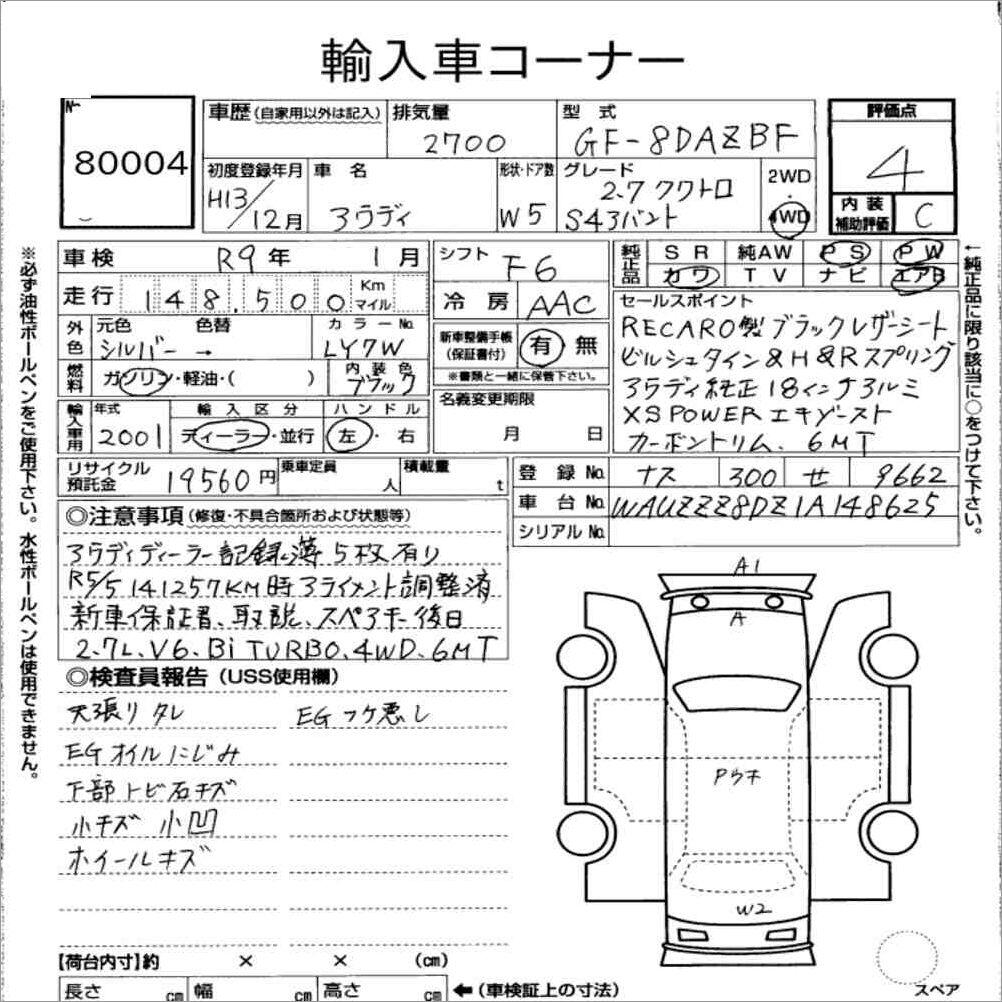 輸入車コーナー
80004
車歴(自家用以外は記入)
排気量
2700
型式
GF-8DAZBF
評価点
4
初度登録年月
H13/12月
車名
アウディ
形状・ドア数
W5
グレード
2.7 クワトロ
S4アバント
2WD
・
4WD
内装補助評価
C
車検
R9年 1月
シフト
F6
純正品
SR 純AW PS PW
カワ TV ナビ エアB
走行
148,500
Km
マイル
冷房
AAC
セールスポイント
RECARO製ブラックレザーシート
ビルシュタイン&H&Rスプリング
アウディ純正18インチアルミ
XSPOWERエキゾースト
カーボントリム、6MT
外色
元色 色替
シルバー →
カラーNo.
LY7W
新車整備手帳
(保証書付)
有 無
※書類と一緒に保管下さい。
燃料
ガソリン・軽油・( )
内装色
ブラック
名義変更期限
月 日
輸入車用
年式
2001
輸入区分
ディーラー・並行
ハンドル
左・右
リサイクル預託金
19560円
乗車定員
人
積載量
t
登録No.
ナス 300 せ 9662
車台No.
WAUZZZ8DZ1A148625
シリアルNo.
◎注意事項(修復・不具合箇所および状態等)
アウディディーラー記録簿5枚有り
R5/5 141257KM時アライメント調整済
新車保証書、取説、スペアキー後日
2.7L、V6、Bi TURBO、4WD、6MT
◎検査員報告(USS使用欄)
天張りタレ EGフケ悪し
EGオイルにじみ
下部トビ石キズ
小キズ 小凹
ホイールキズ
A1
A
Pウチ
W2
スペア
【荷台内寸】約 × × (cm)
長さ cm 幅 cm 高さ cm
←(車検証上の寸法)
※必ず油性ボールペンをご使用下さい。水性ボールペンは使用できません。
←純正品に限り該当に○をつけて下さい。